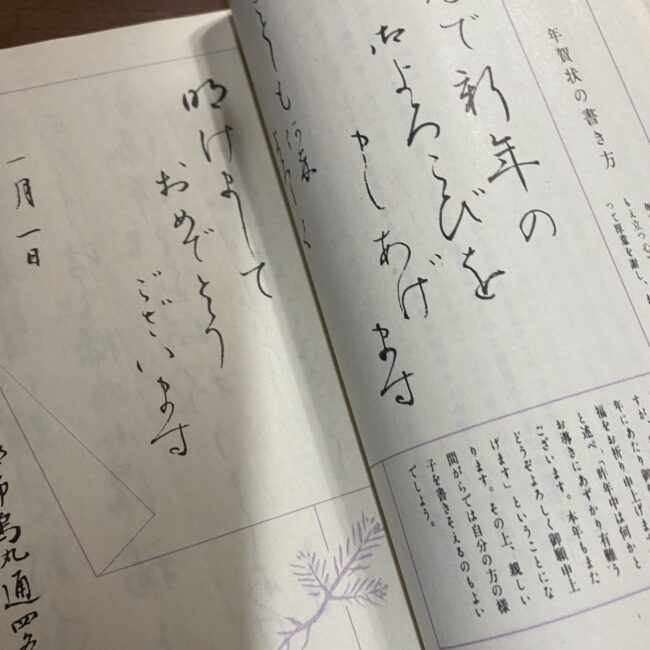 年賀状の書き方
もえ立つ心
って厚意を謝し、
で新年の
およろこびを
申しあげ
ます
ことしも何卒
よろしく
年にあたり御
福をお祈り申上げま
と述べ、「昨年中は何かと
お導きにあずかり有難う
ございます。本年もまた
どうぞよろしく御願申上
げます」ということにな
ります。その上、親しい
間がらでは自分の方の様
子を書きそえるのもよい
でしょう。
明けまして
おめでとう
ございます
一月一日
市烏丸通四条